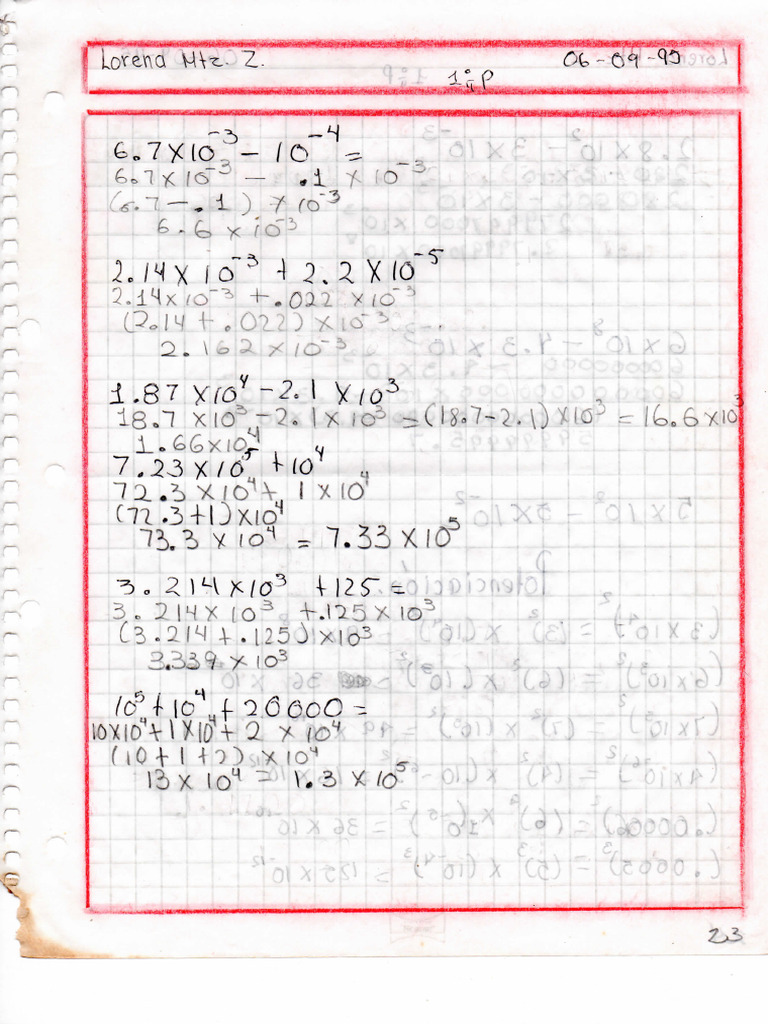 Lorena Mtz. Z. 06-09-95
6.7×10⁻³ - 10⁻⁴ =
6.7×10⁻³ - .1 × 10⁻³
(6.7 - .1) × 10⁻³
6.6 × 10⁻³
2.14 × 10⁻³ + 2.2 × 10⁻⁵
2.14×10⁻³ + .022 × 10⁻³
(2.14 + .022) × 10⁻³
2.162 × 10⁻³
1.87 × 10⁴ - 2.1 × 10³
18.7 × 10³ - 2.1 × 10³ = (18.7-2.1)×10³ = 16.6×10³
1.66×10⁴
7.23×10⁵ + 10⁴
72.3 × 10⁴ + 1 × 10⁴
(72.3+1)×10⁴
73.3 × 10⁴ = 7.33 × 10⁵
3.214×10³ + 125 =
3.214× 10³ + .125 × 10³
(3.214 + .125) × 10³
3.339 × 10³
10⁵ + 10⁴ + 20000 =
10×10⁴ + 1×10⁴ + 2 × 10⁴
(10 + 1 + 2) × 10⁴
13 × 10⁴ = 1.3 × 10⁵
23